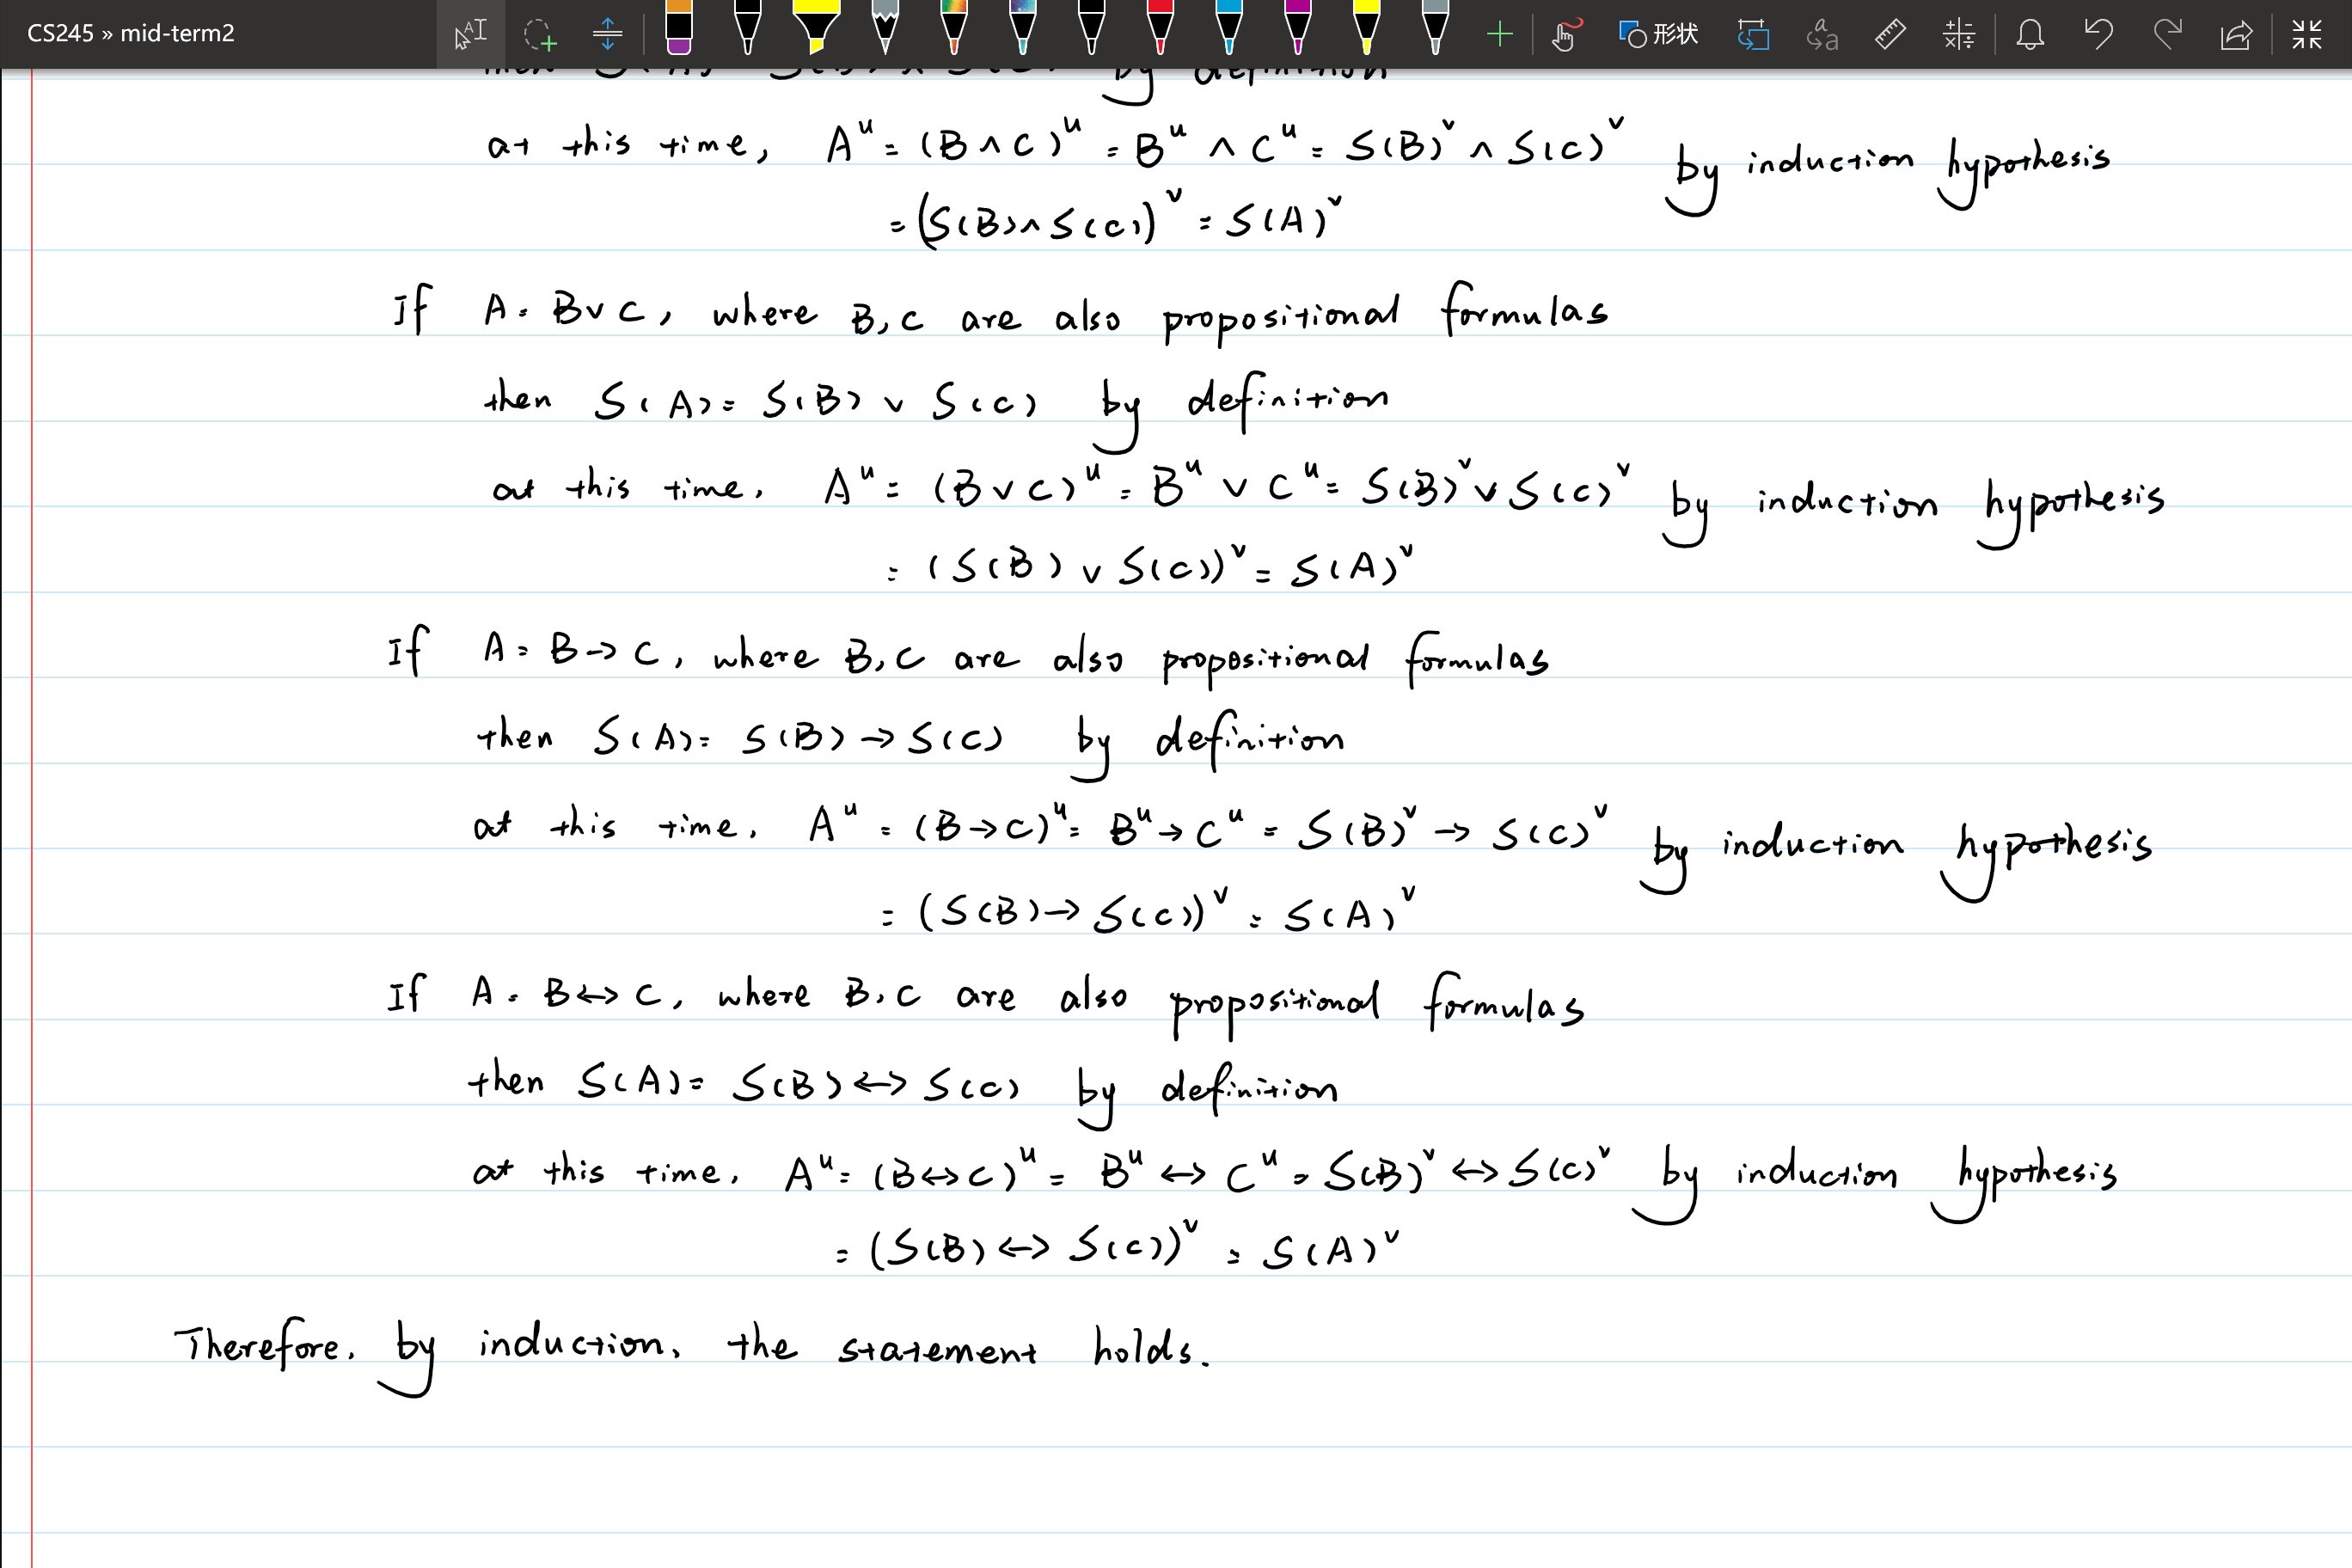 CS245 » mid-term2
形状
then S(A) = S(B) ∧ S(C) by definition
at this time, A^u = (B ∧ C)^u = B^u ∧ C^u = S(B)^v ∧ S(C)^v by induction hypothesis
= (S(B) ∧ S(C))^v = S(A)^v
If A = B ∨ C, where B, C are also propositional formulas
then S(A) = S(B) ∨ S(C) by definition
at this time, A^u = (B ∨ C)^u = B^u ∨ C^u = S(B)^v ∨ S(C)^v by induction hypothesis
= (S(B) ∨ S(C))^v = S(A)^v
If A = B → C, where B, C are also propositional formulas
then S(A) = S(B) → S(C) by definition
at this time, A^u = (B → C)^u = B^u → C^u = S(B)^v → S(C)^v by induction hypothesis
= (S(B) → S(C))^v = S(A)^v
If A = B ↔ C, where B, C are also propositional formulas
then S(A) = S(B) ↔ S(C) by definition
at this time, A^u = (B ↔ C)^u = B^u ↔ C^u = S(B)^v ↔ S(C)^v by induction hypothesis
= (S(B) ↔ S(C))^v = S(A)^v
Therefore, by induction, the statement holds.